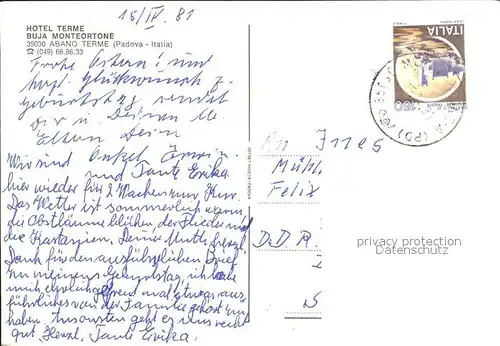 15/IV. 81
HOTEL TERME
BUJA MONTEORTONE
35030 ABANO TERME (Padova - Italia)
☎ (049) 66.86.33
Frohe Ostern! und
herzl. Glückwunsch z.
Geburtstag sendet
Dir u Deinen l.
Eltern Dein
Onkel Erwin
und Tante Erika
Wir sind
hier wieder für 2 Wochen zur Kur.
Das Wetter ist sommerlich warm,
die Obstbäume blühen, der Flieder und
die Kastanien. Deine Mutti herzl.
Dank für den ausführlichen Brief
zu meinem Geburtstag, ich habe
mich gefreut mal etwas aus-
führliches von der Familie gehört zu
haben. Ansonsten geht es uns recht
gut. Herzl. Tante Erika.
ITALIA
An Ines
Mühl
Felix
D.D.R.
privacy protection
Datenschutz